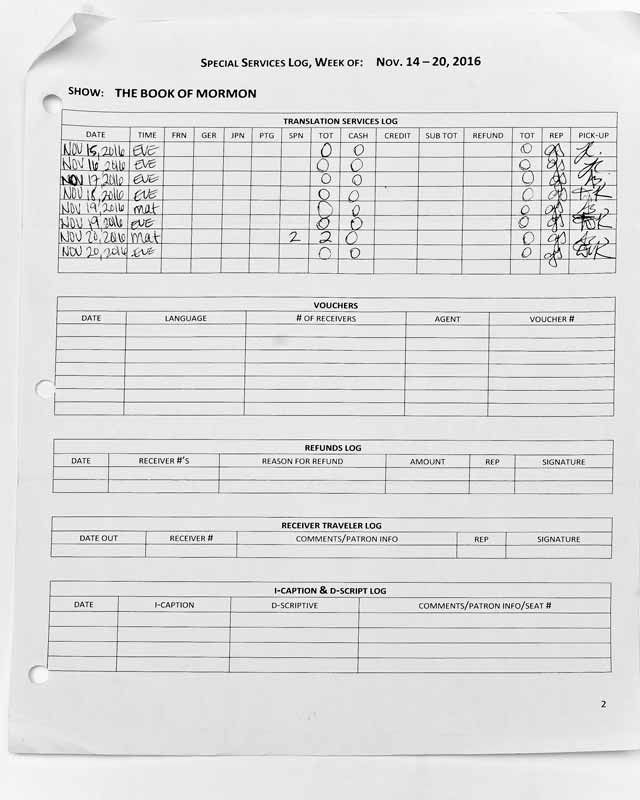 SPECIAL SERVICES LOG, WEEK OF: NOV. 14 – 20, 2016
SHOW: THE BOOK OF MORMON
TRANSLATION SERVICES LOG
DATE TIME FRN GER JPN PTG SPN TOT CASH CREDIT SUB TOT REFUND TOT REP PICK-UP
NOV 15, 2016 EVE 0 0 0
NOV 16 2016 EVE 0 0 0
NOV 17, 2016 EVE 0 0 0
NOV 18, 2016 EVE 0 0 0
NOV 19, 2016 mat 0 0 0
NOV 19, 2016 EVE 0 0 0
NOV 20, 2016 mat 2 2 0 0
NOV 20, 2016 EVE 0 0 0
VOUCHERS
DATE LANGUAGE # OF RECEIVERS AGENT VOUCHER #
REFUNDS LOG
DATE RECEIVER #'S REASON FOR REFUND AMOUNT REP SIGNATURE
RECEIVER TRAVELER LOG
DATE OUT RECEIVER # COMMENTS/PATRON INFO REP SIGNATURE
I-CAPTION & D-SCRIPT LOG
DATE I-CAPTION D-SCRIPTIVE COMMENTS/PATRON INFO/SEAT #
2